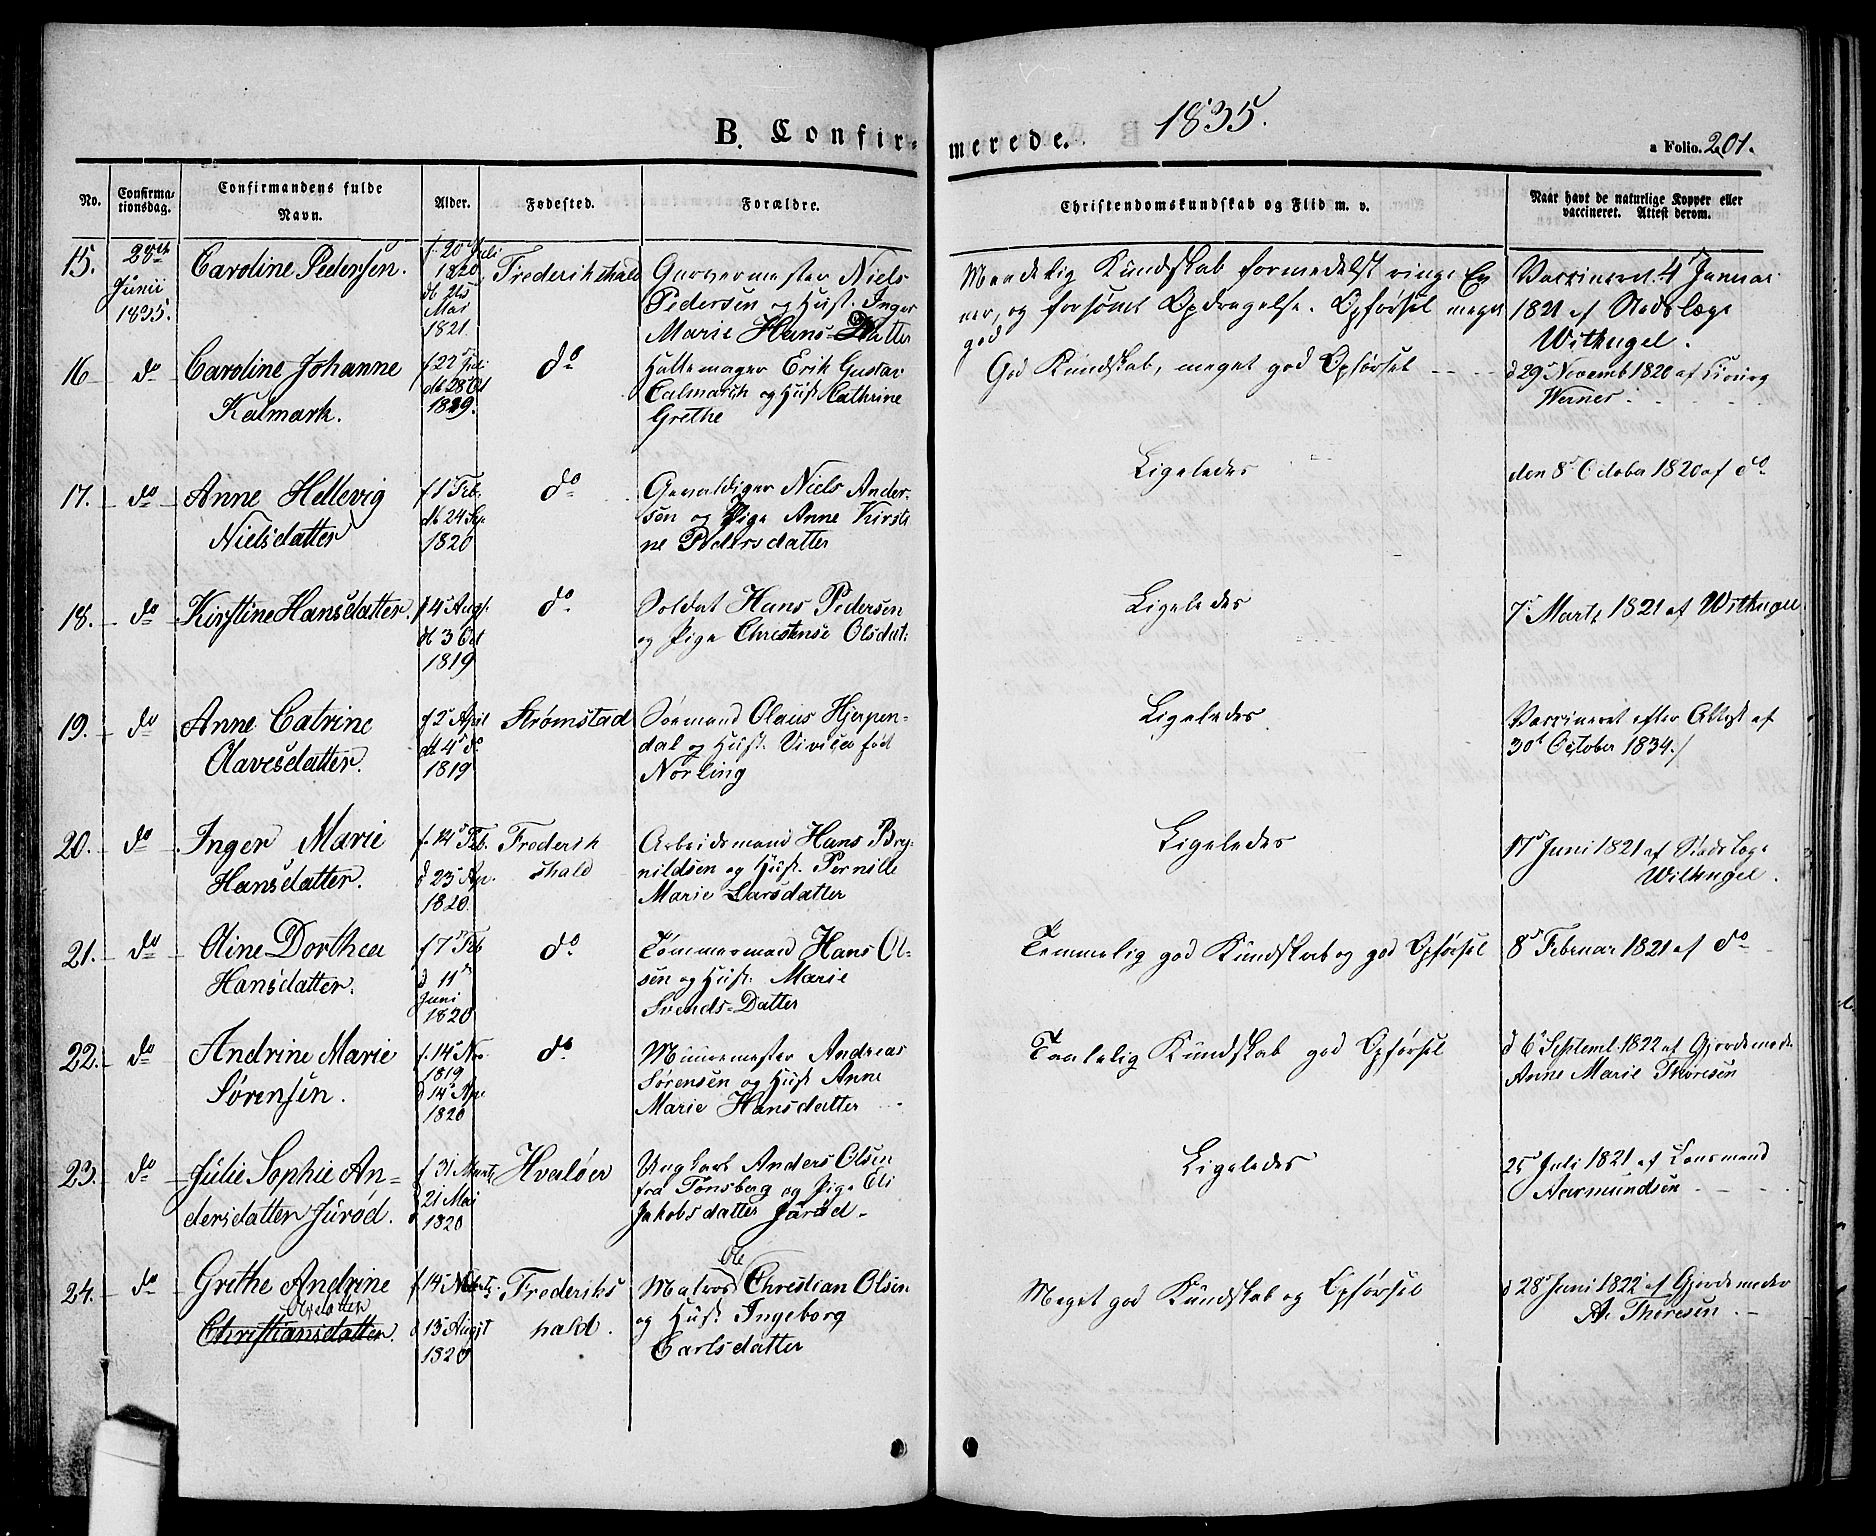 B. Confir-
merede.
1835.
a Folio. 201.
No.
Confirma-
tionsdag.
Confirmandens fulde
Navn.
Alder.
Fødested.
Forældre.
Christendomskundskab og Flid m. v.
Naar havt de naturlige Kopper eller
vaccineret. Attest derom.
15.
Junii
1835.
Caroline Pedersen.
f. 20 Juli
1820
db 25
Mai
1821.
Frederikshald
Garvermester Niels
Pedersen og Hust. Inger
Marie Hans-Datter
Maadelig Kundskab formedelst ringe Ev
ner, og forsømt Opdragelse. Opførsel meget
god
Vaccineret 4 Januar
1821 af Stadslæge
Withugel.
16
do
Caroline Johanne
Kalmark.
f 22 Juli
db 28 Oct
1819.
do
Hattemager Erik Gustav
Calmarck og Hust Cathrine
Grethe
God Kundskab, meget god Opførsel
d 29 Novemb 1820 af Chirurg
Werner.
17.
do
Anne Hellevig
Nielsdatter
f 1 Feb.
db 24 Sep.
1820
do
Gevaldiger Niels Ander-
sen og Pige Anne Kirsti
ne Pedersdatter
Ligeledes
den 8de October 1820 af do
18.
do
Kirstine Hansdatter.
f 4 Augs.
db 3 Oct
1819
do
Soldat Hans Pedersen
og Pige Christense Olsdat.
Ligeledes
7 Marts 1821 af Withugel
19.
do
Anne Catrine
Olavesdatter.
f 2 April
db 4 do
1819
Strømstad
Sømand Olaus Hjerpen-
dal og Hust. Vivica fød
Norling
Ligeledes.
Vaccineret efter Attest af
30t October 1834./
20.
do
Inger Marie
Hansdatter.
f. 14 Feb.
d 23 Ap.
1820.
Frederik
shald
Arbeidsmand Hans Bry-
nildsen og Hust. Pernille
Marie Larsdatter
Ligeledes
17 Juni 1821 af Stadslæge
Withugel.
21.
do
Oline Dorthea
Hansdatter.
f 7 Feb
d 11
Juni
1820
do
Tømmermand Hans Ol-
sen og Hust. Marie
Svends-Datter
Temmelig god Kundskab og god Opførsel
8 Februar 1821 af do
22.
do
Andrine Marie
Sørensen.
f. 14 Nov
1819
d 14 Apr
1820
do
Muurmester Andreas
Sørensen og Hust Anne
Marie Hansdatter
Taalelig Kundskab god Opførsel
d 6 Septemb. 1822 af Gjordemoder
Anne Marie Thøresen
23.
do
Julie Sophie An-
dersdatter Jurød.
f 31 Marts
d 21 Mai
1820
Hvaløer
Ungkarl Anders Olsen
fra Tønsberg og Pige Eli
Jakobsdatter Jurød.
Ligeledes
25 Juli 1821 af Lensmand
Aarmundsen
24.
do
Grethe Andrine
Olsdatter
Christiansdatter.
f 14 Marts
d 13 Augst
1820
Frederiks
hald.
Ole
Matros Christian Olsen
og Hust Ingeborg
Carlsdatter
Meget god Kundskab og Opførsel
d 28 Juni 1822 af Gjordemoder
A. Thøresen.